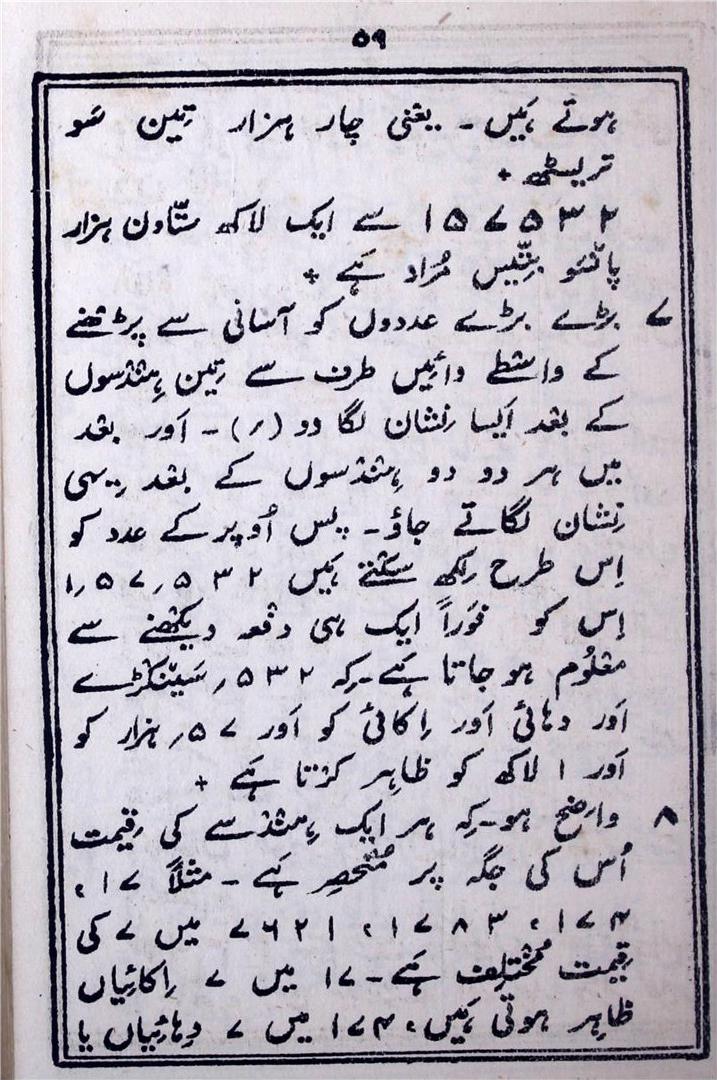 ۵۹
ہوتے ہَیں۔ یعنی چار ہزار تِین سَو
تریسٹھ +
۱۵۷۵۳۲ سے ایک لاکھ ستّاون ہزار
پانسَو بتِّیس مُراد ہَے +
۷ بڑے بڑے عددوں کو آسانی سے پڑھنے
کے واسطے دائیں طرف سے تِین ہِندسوں
کے بعد اَیسا نِشان لگا دو (؍)۔ اَور بعد
میں ہر دو دو ہِندسوں کے بعد یِہی
نِشان لگاتے جاؤ۔ پس اُوپر کے عدد کو
اِس طرح لِکھ سکتے ہَیں ۱؍۵۷؍۵۳۲
اِس کو فَوراً ایک ہی دفعہ دیکھنے سے
معلُوم ہو جاتا ہَے۔ کِہ ۵۳۲؍ سَینکڑے
اَور دہائی اَور اِکائی کو اَور ۵۷؍ ہزار کو
اَور ۱ لاکھ کو ظاہِر کرتا ہَے +
۸ واضِح ہو۔ کِہ ہر ایک ہِندسے کی قِیمت
اُس کی جگہ پر مُنحصِر ہَے۔ مثلاً ۱۷،
۱۷۴، ۱۷۸۳، ۷۶۲۱ میں ۷ کی
قِیمت مُختلِف ہَے۔ ۱۷ میں ۷ اِکائِیاں
ظاہِر ہوتی ہَیں، ۱۷۴ میں ۷ دِہائِیاں یا